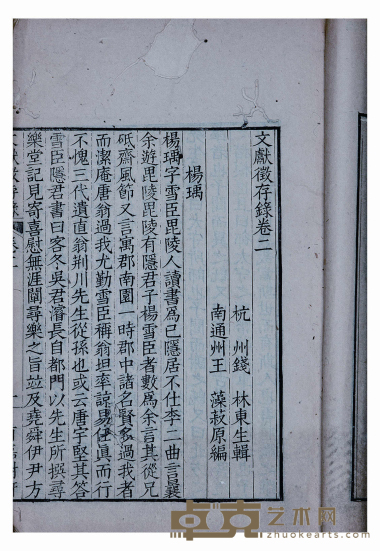 文獻徵存錄卷二
杭州錢 林東生輯
南通州王 藻菽原編
楊瑀
楊瑀字雪臣毘陵人讀書為已隱居不仕李二曲言曩
余遊毘陵毘陵有隱君子楊雪臣者數為余言其從兄
砥齋風節又言寓郡南園一時郡中諸名賢
過我者
而潔庵唐翁過我尤勤雪臣稱翁坦率諒易任眞而行
不愧三代遺直翁荆川先生從孫也或云唐宇堅其答
雪臣隱君書曰客冬吳君濬長自都門以先生所撰尋
樂堂記見寄喜慰無涯闡尋樂之旨竝及堯舜伊尹方
卓克艺术网
www.zhuokearts.com